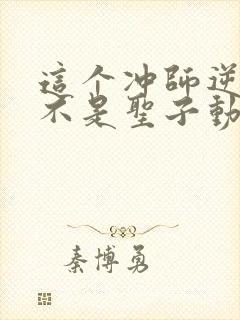 這个冲師逆
不是聖子動
秦博勇